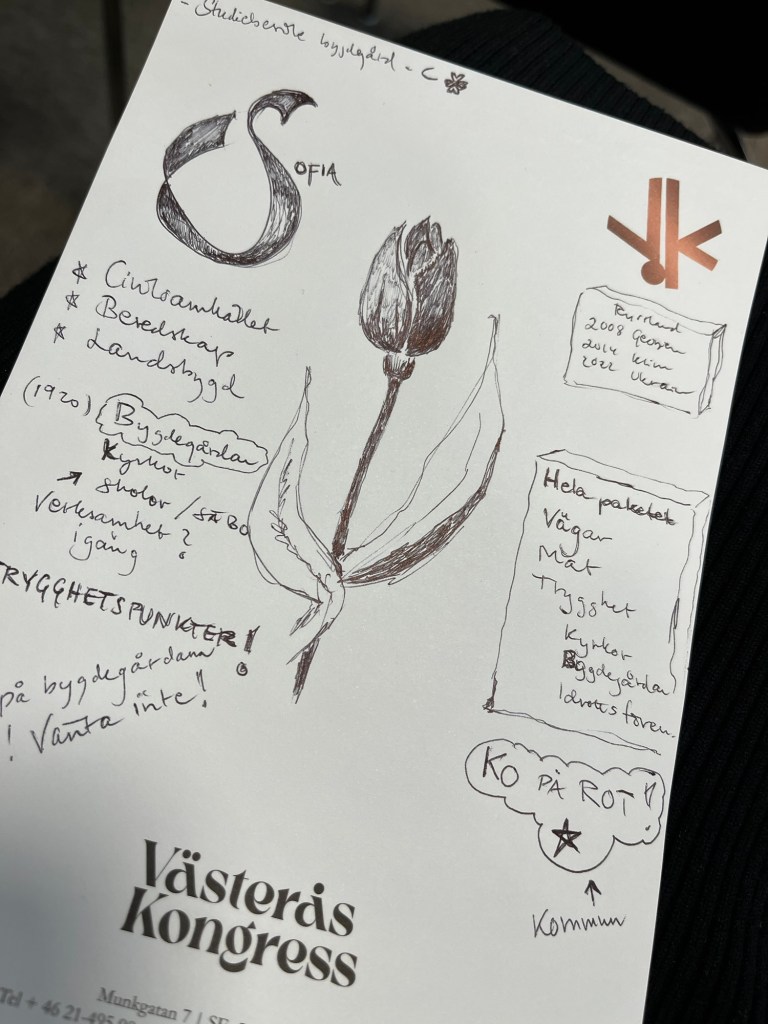 - Studiebesök bygdegård - C
SOFIA
* Civilsamhället
* Beredskap
* Landsbygd
(1920) Bygdegårdar
Kyrkor
→ skolor / SÄBO
Verksamhet?
igång
TRYGGHETSPUNKTER!
på bygdegårdarna
! Vänta inte!
Ryssland
2008 Georgien
2014 Krim
2022 Ukraina
Hela paketet
Vägar
Mat
Trygghet
Kyrkor
Bygdegårdar
Idrottsfören.
KO PÅ ROT!
↑
Kommun
Västerås
Kongress
Munkgatan 7 | SE
Tel + 46 21-495